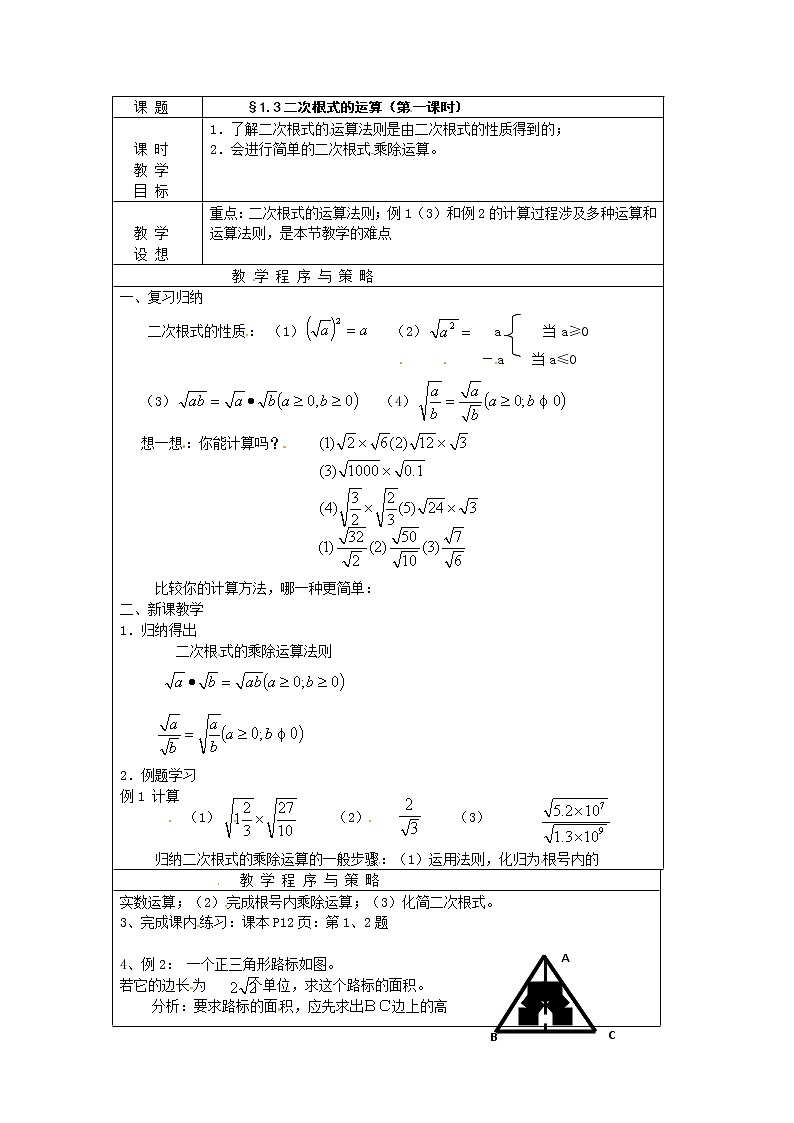 课 题 §1.3二次根式的运算（第一课时）
课 时
教 学
目 标
1．了解二次根式的运算法则是由二次根式的性质得到的；
2．会进行简单的二次根式乘除运算。
教 学
设 想
重点：二次根式的运算法则；例1（3）和例2的计算过程涉及多种运算和
运算法则，是本节教学的难点
教 学 程 序 与 策 略
一、复习归纳
二次根式的性质：（1）(√a)²=a （2）√a²= a 当a≥0
－a 当a≤0
（3）√ab=√a●√b(a≥0,b≥0) （4）√(a/b)=√a/√b(a≥0;b φ 0)
想一想：你能计算吗？ (1)√2×√6(2)√12×√3
(3)√1000×√0.1
(4)√(3/2)×√(2/3)(5)√24×√3
(1)√32/√2(2)√50/√10(3)√7/√6
比较你的计算方法，哪一种更简单：
二、新课教学
1．归纳得出
二次根式的乘除运算法则
√a●√b=√ab(a≥0;b≥0)
√a/√b=√(a/b)(a≥0;b φ 0)
2．例题学习
例1 计算
（1）√(1 2/3)×√(27/10) （2） 2/√3 （3） √(5.2×10⁷)/√(1.3×10⁹)
归纳二次根式的乘除运算的一般步骤：（1）运用法则，化归为根号内的
教 学 程 序 与 策 略
实数运算；（2）完成根号内乘除运算；（3）化简二次根式。
3、完成课内练习：课本P12页：第1、2题
4、例2： 一个正三角形路标如图。
若它的边长为 2√2个单位，求这个路标的面积。
分析：要求路标的面积，应先求出ＢＣ边上的高
A
B
C